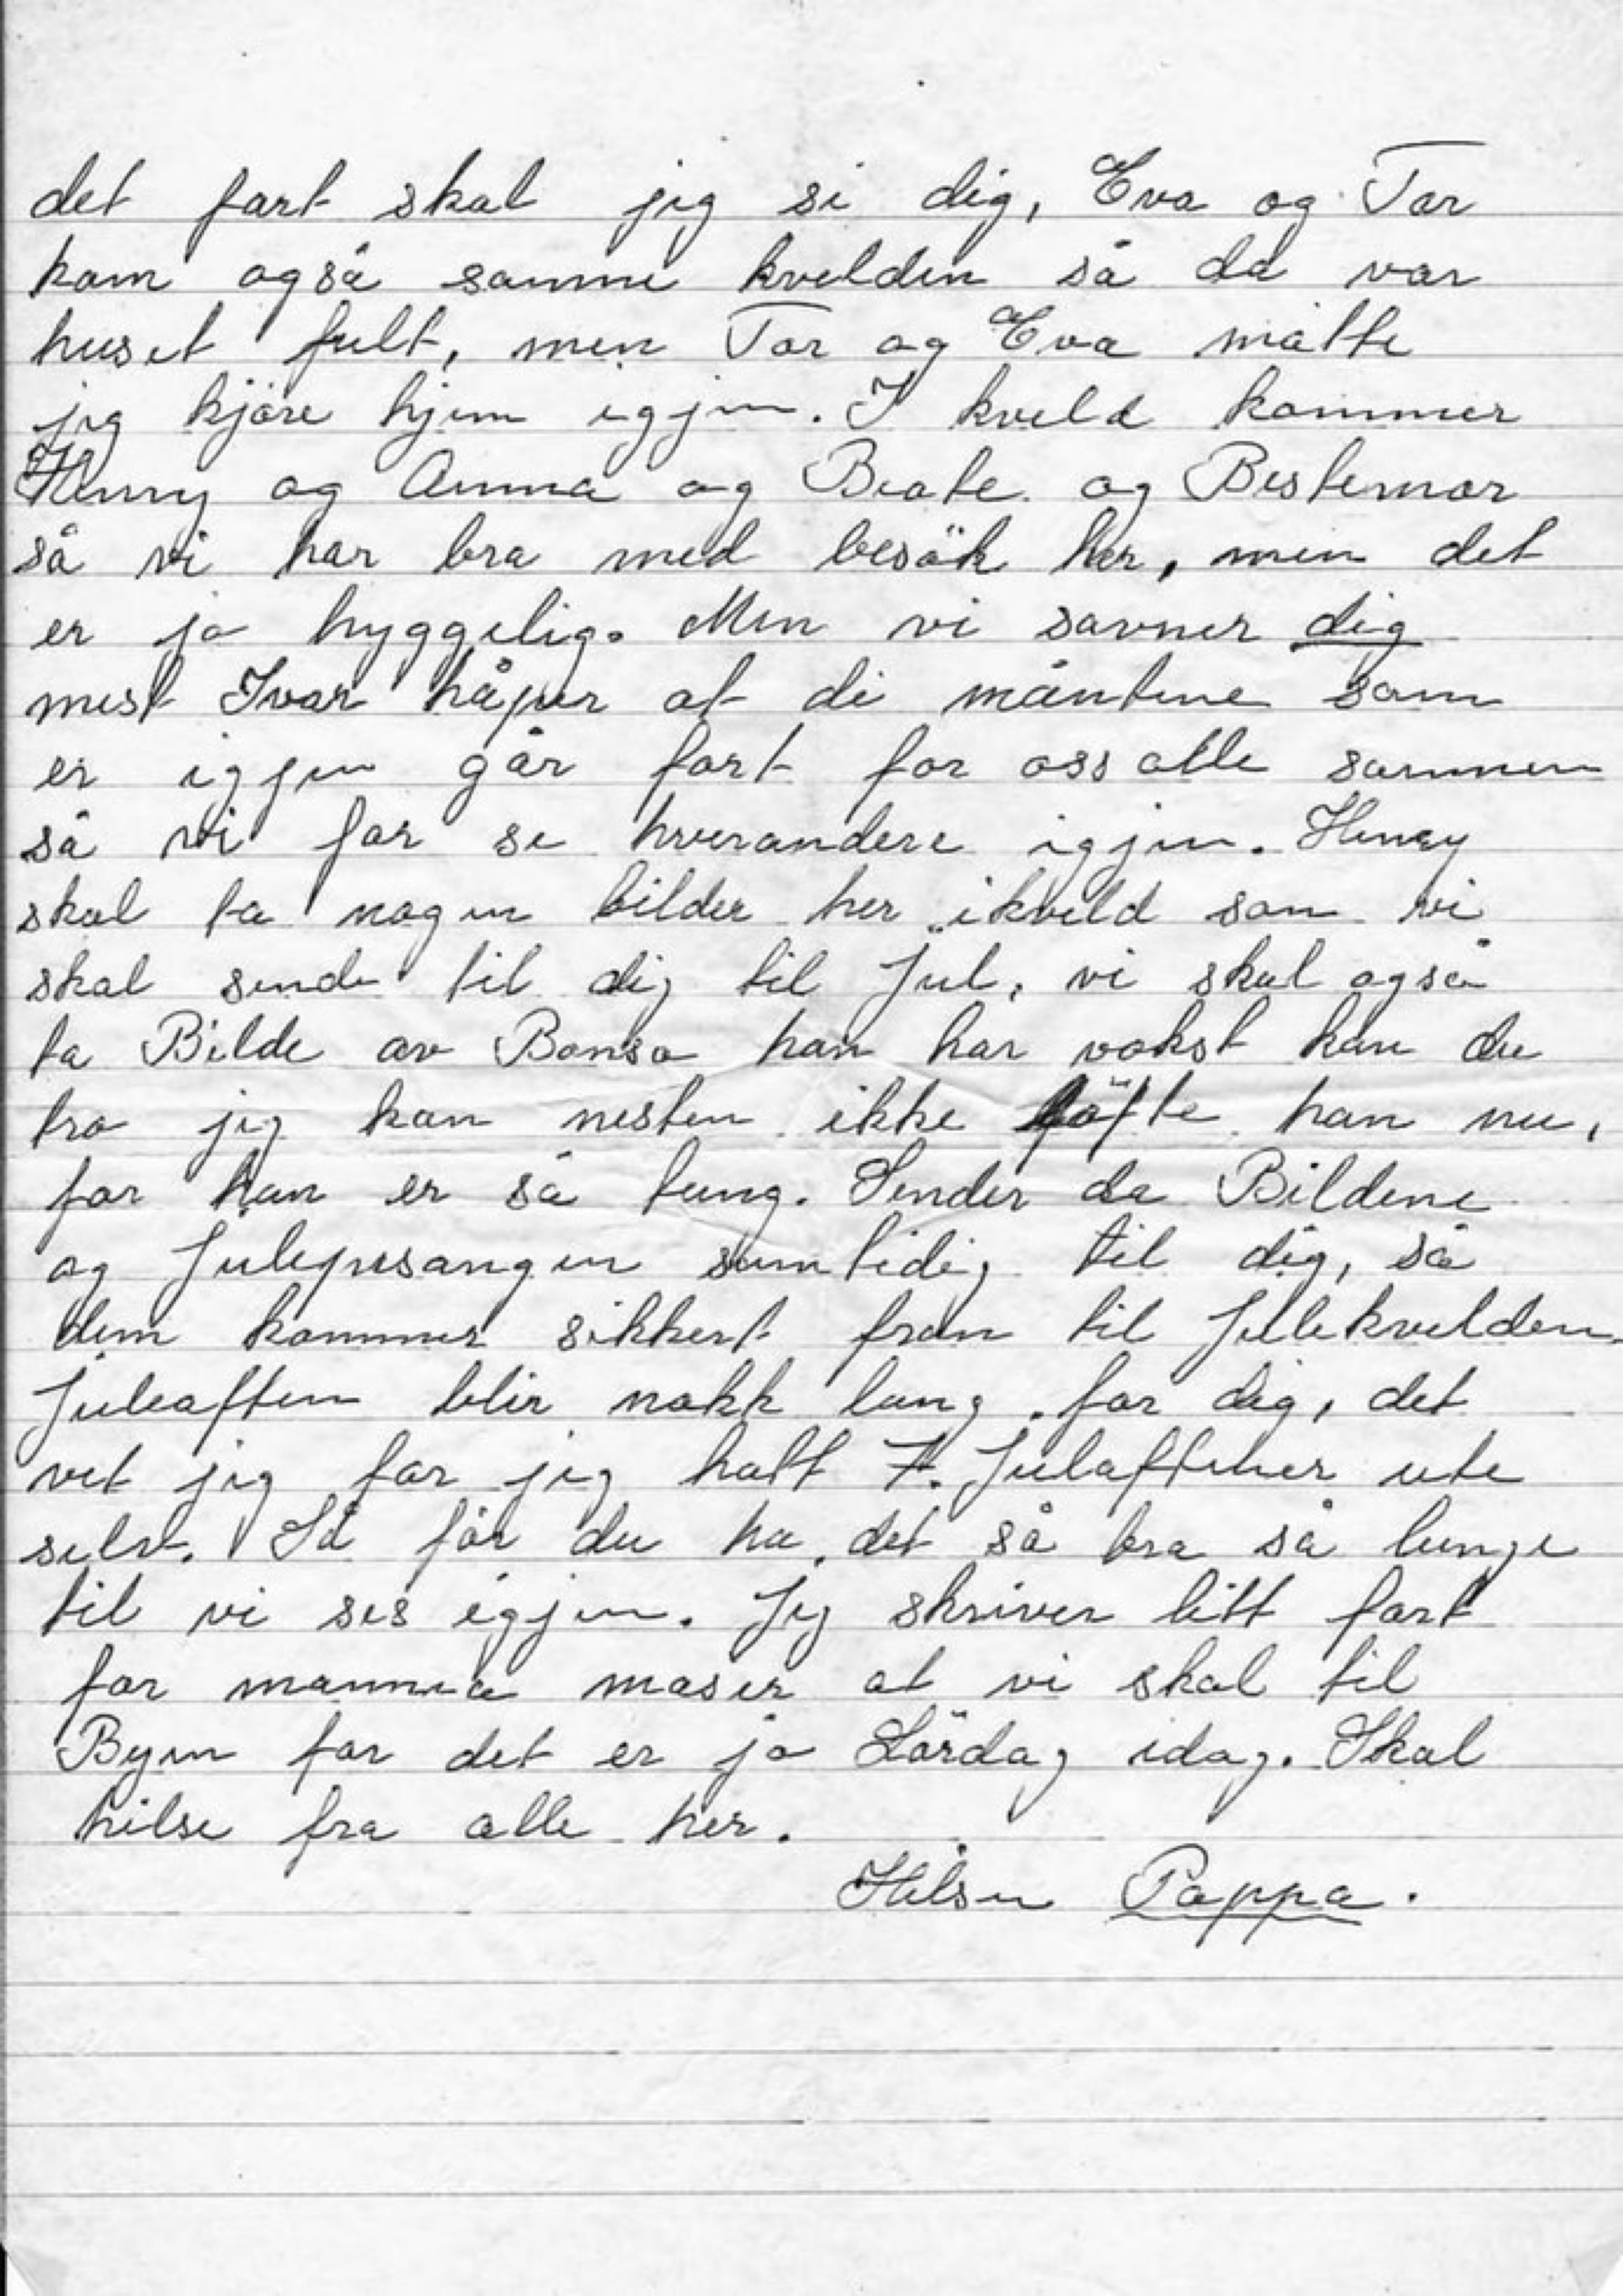 det fort skal jeg si dig, Eva og Tor
kom også samme kvelden så da var
huset fult, men Tor og Eva måtte
jeg kjöre hjem igjen. I kveld kommer
Henry og Anna og Beate og Bestemor
så vi har bra med besök her, men det
er jo hyggelig. Men vi savner dig
mest Ivar håper at de måntene som
er igjen går fort for oss alle sammen
så vi far se hverandere igjen. Henry
skal ta nogen bilder her ikveld som vi
skal sende til dig til Jul, vi skal også
ta Bilde av Bonso han har vokst kan du
tro jeg kan nesten ikke löfte han nu,
for han er så tung. Sender da Bildene
og Julepresangen samtidig til dig, så
dem kommer sikkert fram til Julekvelden.
Juleaften blir nokk lang for dig, det
vet jeg for jeg hatt 7. Julaftener ute
selv. Så får du ha det så bra så lenge
til vi ses igjen. Jeg skriver litt fort
for mamma maser at vi skal til
Byen for det er jo Lördag idag. Skal
hilse fra alle her.
Hilsen Pappa.